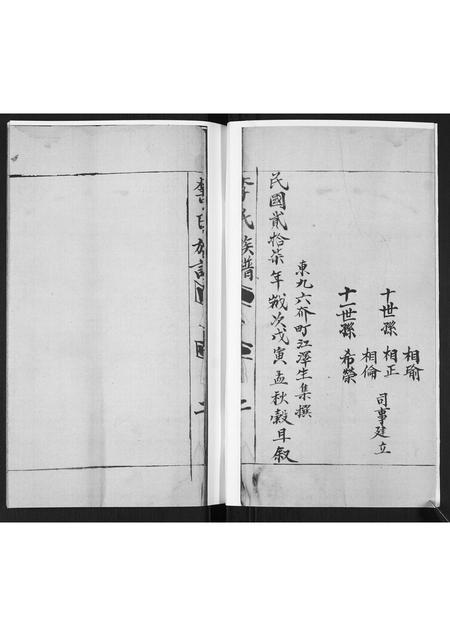 相瑜
十世孫 相正 司事建立
相倫
十一世孫 希榮
東九六奇町江澤生集撰
民國貳拾柒年歲次戊寅孟秋穀旦叙
李氏族譜
二
李氏族譜
二